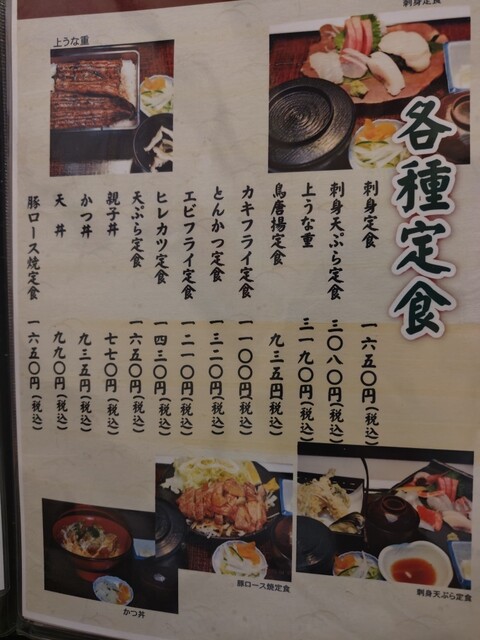 各種定食
刺身定食 一六五〇円(税込)
刺身天ぷら定食 三〇八〇円(税込)
上うな重 三一九〇円(税込)
鳥唐揚定食 九三五円(税込)
カキフライ定食 一一〇〇円(税込)
とんかつ定食 一三二〇円(税込)
エビフライ定食 一二一〇円(税込)
ヒレカツ定食 一四三〇円(税込)
天ぷら定食 一六五〇円(税込)
親子丼 七七〇円(税込)
かつ丼 九三五円(税込)
天丼 九九〇円(税込)
豚ロース焼定食 一六五〇円(税込)
上うな重
刺身定食
かつ丼
豚ロース焼定食
刺身天ぷら定食